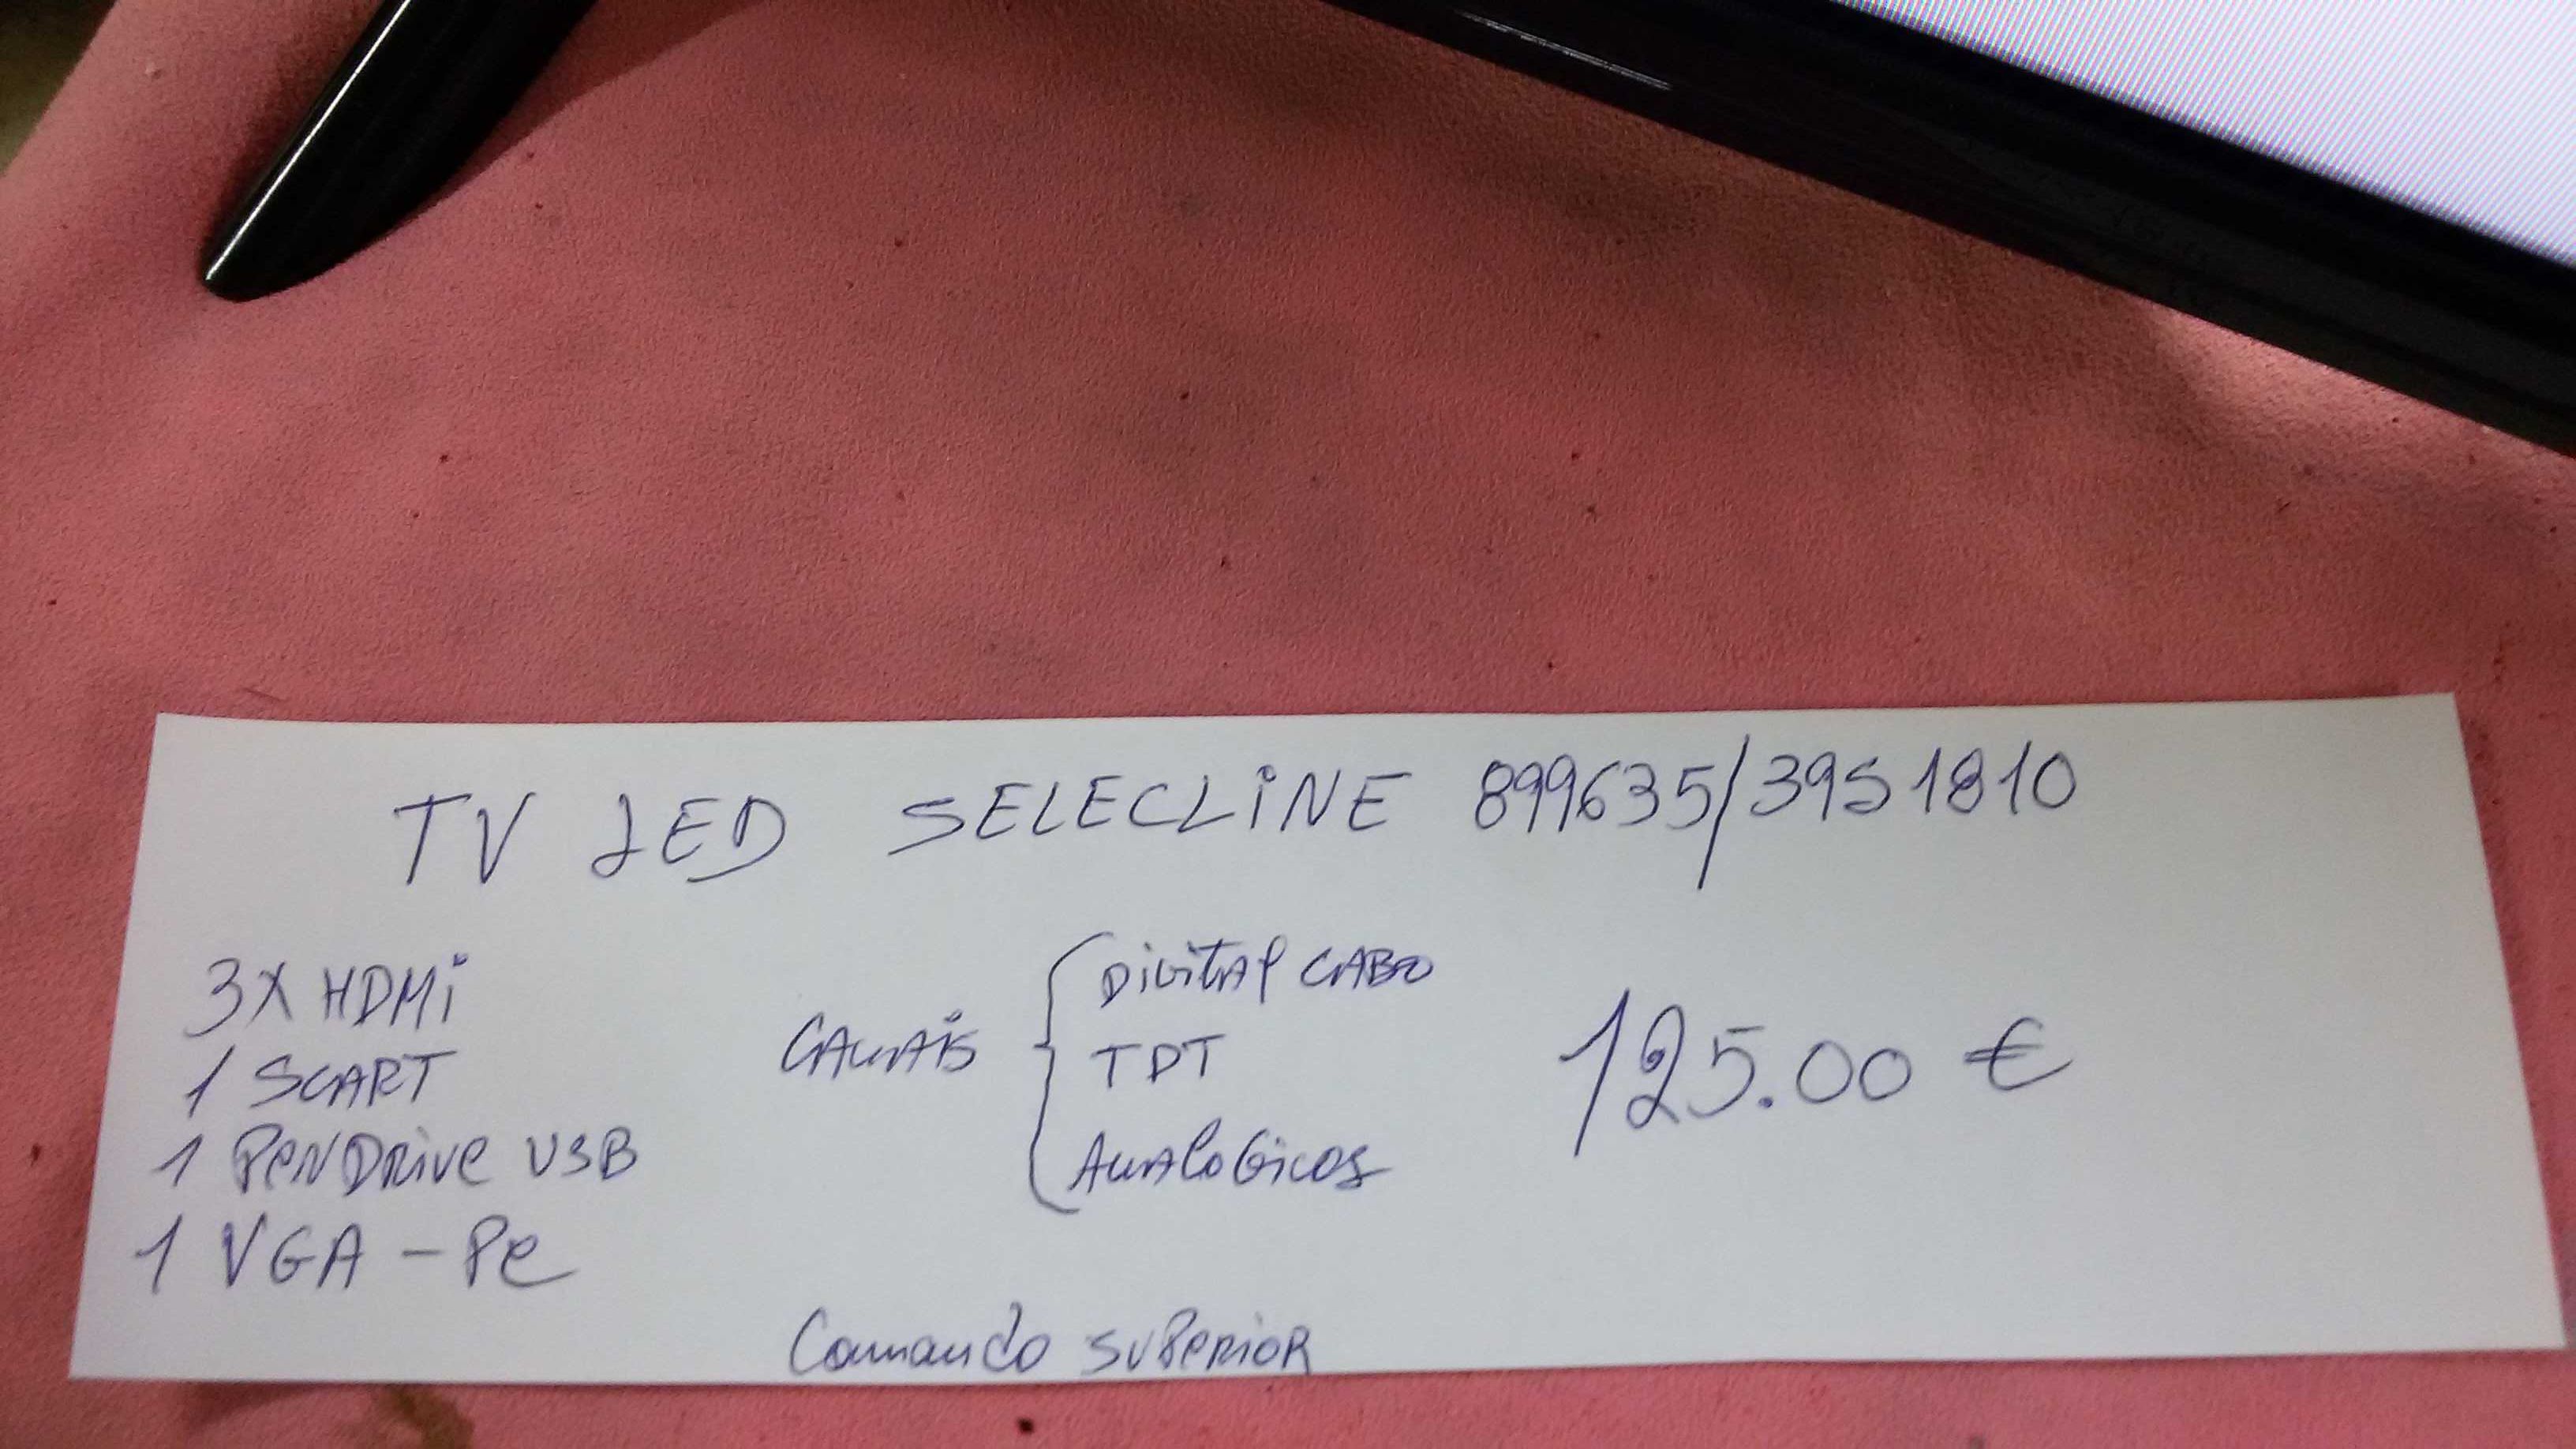 TV LED SELECLiNE 899635/39S1810
3X HDMi
1 SCART
1 PeNDRive USB
1 VGA - Pc
CANAiS
DiGiTAl CABO
TDT
ANAloGicos
125.00 €
Comando SUPeRioR